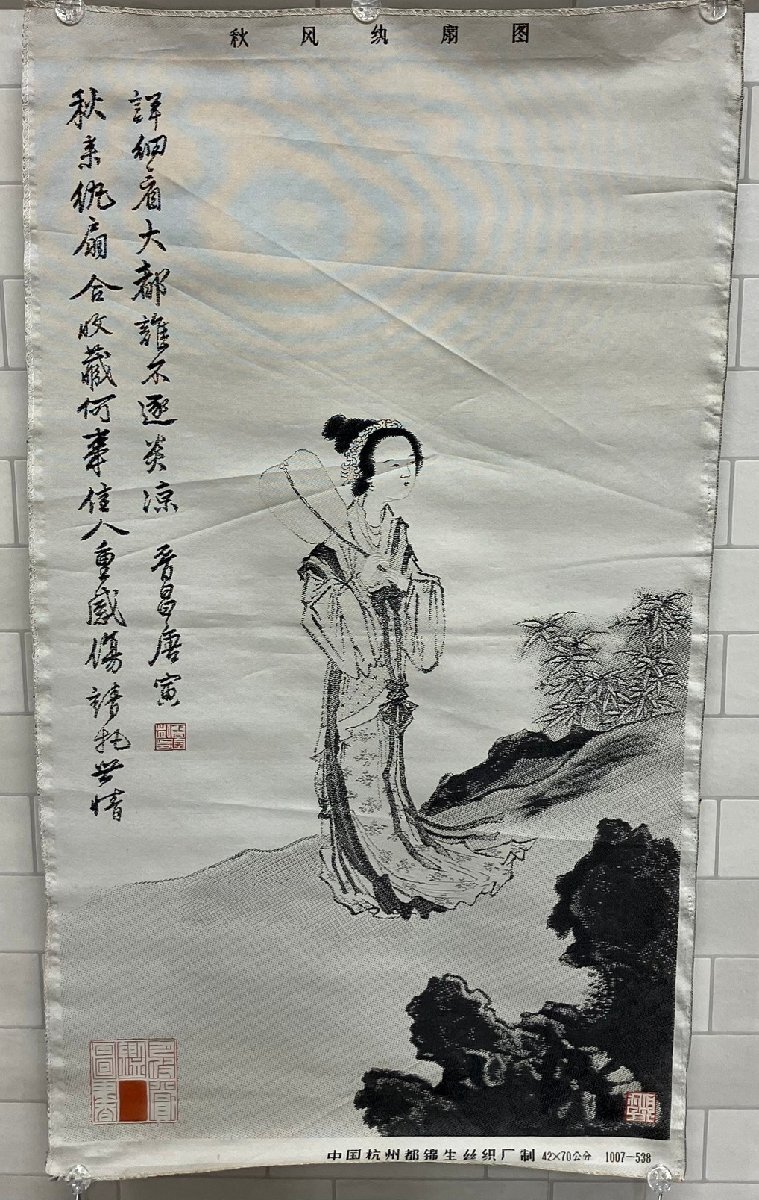 秋风纨扇图
秋来紈扇合收藏何事佳人重感傷請托世情
詳細看大都誰不逐炎涼 晉昌唐寅
中国杭州都锦生丝织厂制 42×70公分 1007—538